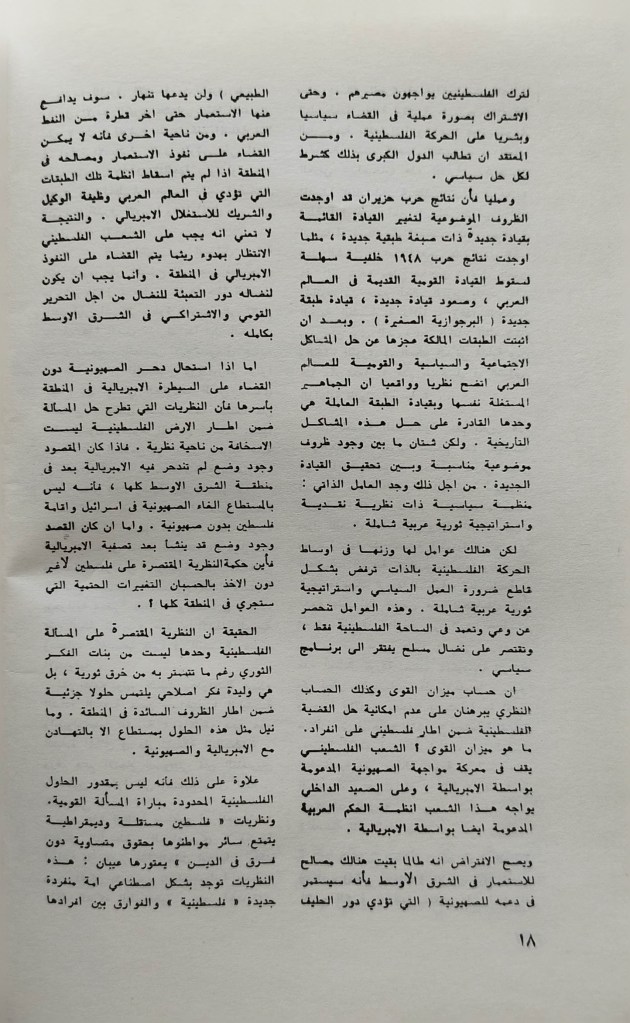 لترك الفلسطينيين يواجهون مصيرهم . وحتى
الاشتراك بصورة عملية في القضاء سياسيا
وبشريا على الحركة الفلسطينية . ومــن
المعتقد ان تطالب الدول الكبرى بذلك كشرط
لكل حل سياسي .
وعمليا فأن نتائج حرب حزيران قد اوجدت
الظروف الموضوعية لتغير القيادة القائمة
بقيادة جديدة ذات صبغة طبقية جديدة ، مثلما
اوجدت نتائج حرب ١٩٤٨ خلفية سهلة
لسقوط القيادة القومية القديمة في العالم
العربي ، وصعود قيادة جديدة ، قيادة طبقة
جديدة ( البرجوازية الصغيرة ) . وبعد ان
اثبتت الطبقات المالكة عجزها عن حل المشاكل
الاجتماعية والسياسية والقومية للعالم
العربي اتضح نظريا وواقعيا ان الجماهير
المستغلة نفسها وبقيادة الطبقة العاملة هي
وحدها القادرة على حل هذه المشاكل
التأريخية . ولكن شتان ما بين وجود ظروف
موضوعية مناسبة وبين تحقيق القيادة
الجديدة . من اجل ذلك وجد العامل الذاتي :
منظمة سياسية ذات نظرية نقدية
واستراتيجية ثورية عربية شاملة .
لكن هنالك عوامل لها وزنها في اوساط
الحركة الفلسطينية بالذات ترفض بشكل
قاطع ضرورة العمل السياسي واستراتيجية
ثورية عربية شاملة . وهذه العوامل تنحصر
عن وعي وتعمد في الساحة الفلسطينية فقط ،
وتقتصر على نضال مسلح يفتقر الى برنامج
سياسي .
ان حساب ميزان القوى وكذلك الحساب
النظري يبرهنان على عدم امكانية حل القضية
الفلسطينية ضمن اطار فلسطيني على انفراد.
ما هو ميزان القوى أ الشعب الفلسطيني
يقف في معركة مواجهة الصهيونية المدعومة
بواسطة الامبريالية ، وعلى الصعيد الداخلي
يواجه هذا الشعب انظمة الحكم العربية
المدعومة ايضا بواسطة الامبريالية .
ويصح الافتراض انه طالما بقيت هنالك مصالح
للاستعمار في الشرق الاوسط فأنه سيستمر
في دعمه للصهيونية ( التي تؤدي دور الحليف
الطبيعي ) ولن يدعها تنهار . سوف يدافع
عنها الاستعمار حتى اخر قطرة من النفط
العربي . ومن ناحية اخرى فأنه لا يمكن
القضاء على نفوذ الاستعمار ومصالحه في
المنطقة اذا لم يتم اسقاط انظمة تلك الطبقات
التي تؤدي في العالم العربي وظيفة الوكيل
والشريك للاستغلال الامبريالي . والنتيجة
لا تعني انه يجب على الشعب الفلسطيني
الانتظار بهدوء ريثما يتم القضاء على النفوذ
الامبريالي في المنطقة . وانما يجب ان يكون
لنضاله دور التعبئة للنضال من اجل التحرير
القومي والاشتراكي في الشرق الاوسط
بكامله .
اما اذا استحال دحر الصهيونية دون
القضاء على السيطرة الامبريالية في المنطقة
بأسرها فأن النظريات التي تطرح حل المسألة
ضمن اطار الارض الفلسطينية ليست
الاسخافة من ناحية نظرية . فاذا كان المقصود
وجود وضع لم تندحر فيه الامبريالية بعد في
منطقة الشرق الاوسط كلها ، فأنه ليس
بالمستطاع الغاء الصهيونية في اسرائيل واقامة
فلسطين بدون صهيونية . واما ان كان القصد
وجود وضع قد ينشأ بعد تصفية الامبريالية
فأين حكمة النظرية المقتصرة على فلسطين لاغير
دون الاخذ بالحسبان التغييرات الحتمية التي
ستجري في المنطقة كلها أ .
الحقيقة ان النظرية المقتصرة على المسألة
الفلسطينية وحدها ليست من بنات الفكر
الثوري رغم ما تتستر به من خرق ثورية ، بل
هي وليدة فكر اصلاحي يلتمس حلولا جزئية
ضمن اطار الظروف السائدة في المنطقة . وما
نيل مثل هذه الحلول بمستطاع الا بالتهادن
مع الامبريالية والصهيونية .
علاوة على ذلك فأنه ليس بمقدور الحلول
الفلسطينية المحدودة مباراة المسألة القومية.
ونظريات « فلسطين مستقلة وديمقراطية
يتمتع سائر مواطنوها بحقوق متساوية دون
فرق في الدين » يعتورها عيبان : هذه
النظريات توجد بشكل اصطناعي امة منفردة
جديدة « فلسطينية » والفوارق بين افرادها
١٨